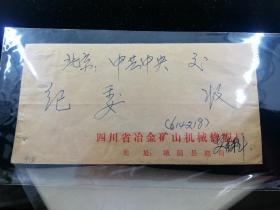 北京：中共中央 交
纪委 收
(614218)
四川省冶金矿山机械修配厂
地址：峨眉县